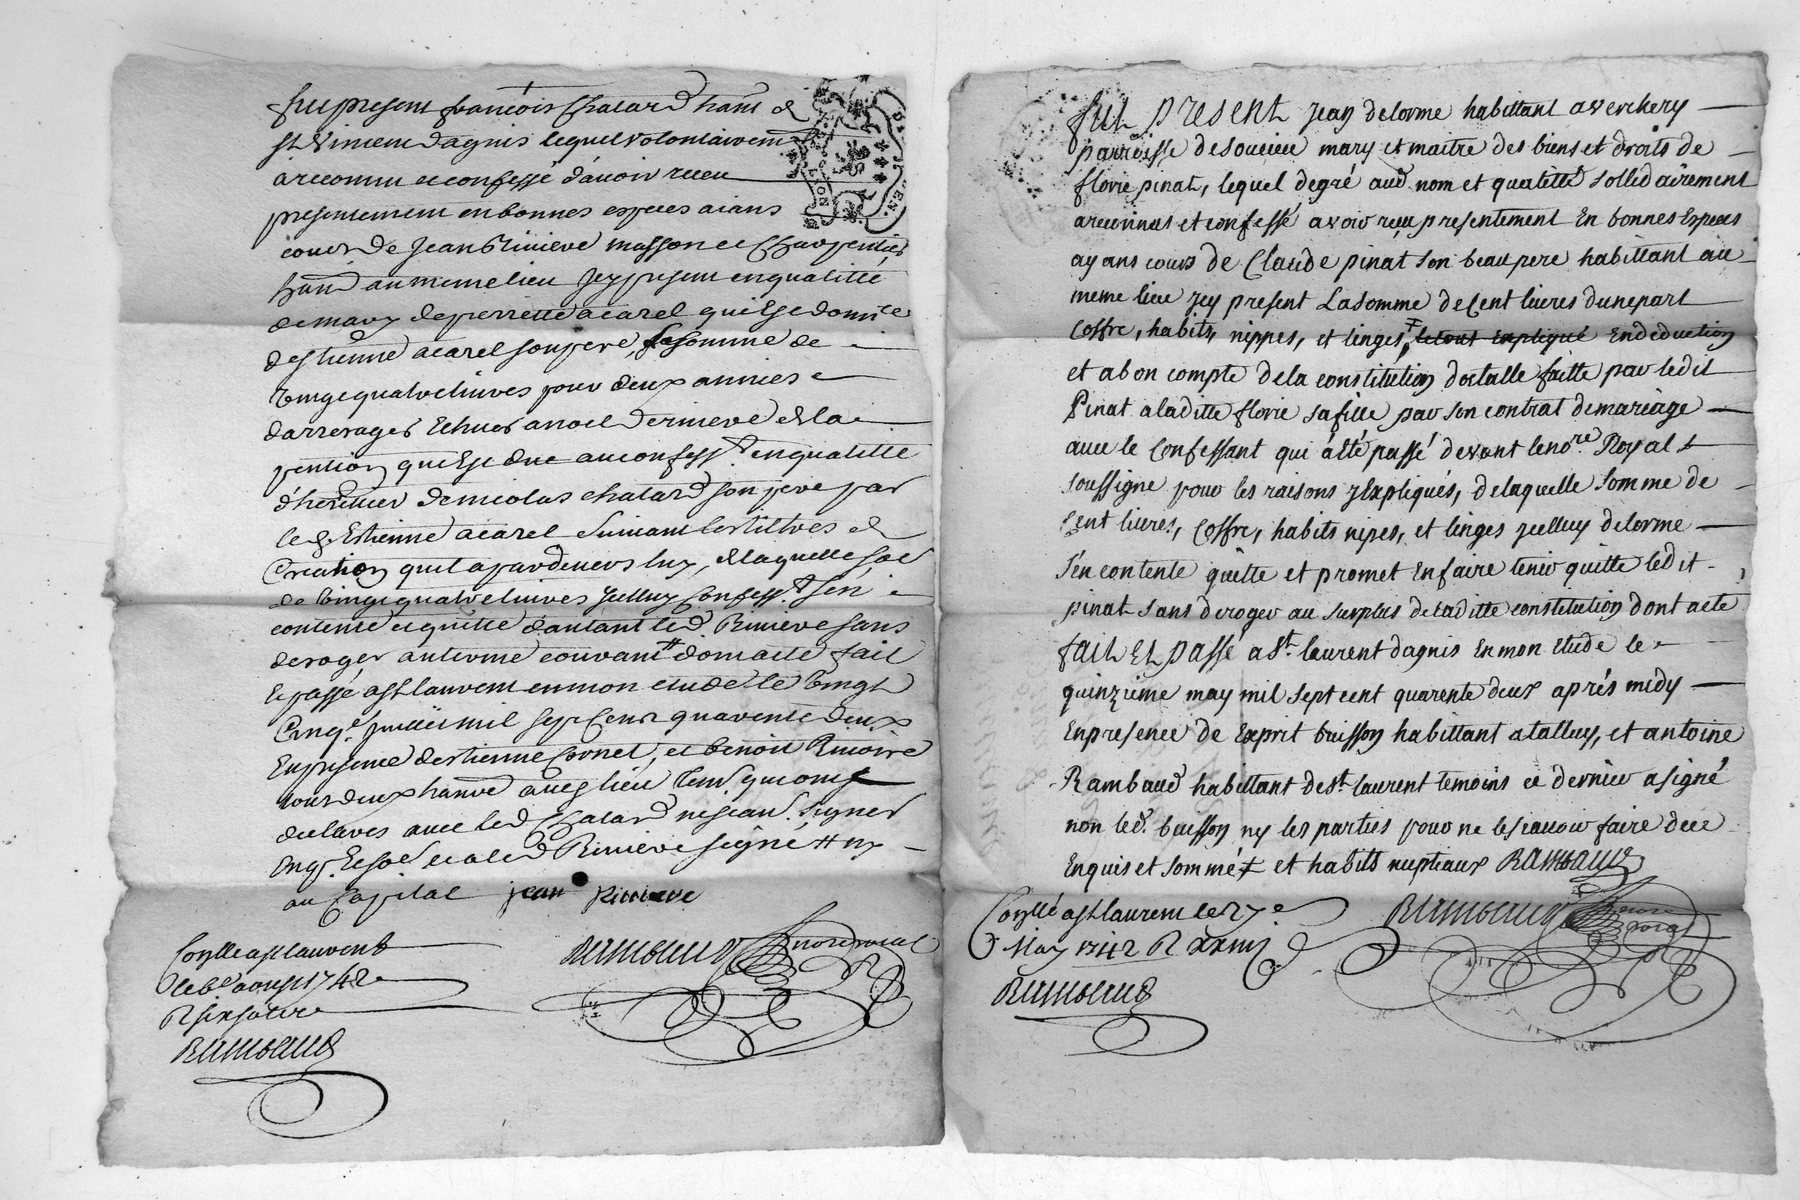 fut present francois Chatard habt de
st Vincent dagnis lequel volontairement
a reconnu et confessé d'avoir receu
presentement en bonnes especes aians
cours de Jean Riviere masson et Charpentier
habt au meme lieu jcy present en qualitté
de mary de pierrette acarel quil se domice
destienne acarel son pere, la somme de
vingt quatre livres pour deux années
darrerages Echues a noel dernier de la
pention quil se due au confesst en qualitté
d'héritier de nicolas chatard son pere par
led. Estienne acarel suivant les tiltres de
Creation quil a pardevers luy, de laquelle soe
de vingt quatre livres jcelluy Confesst s'en
contente et quitte d'autant led. Riviere sans
deroger au terme courant # dont acte fait
et passé a st laurent en mon etude le vingt
Cinqe. juillet mil sept Cent quarente deux
En presence destienne Cornet, et benoit Rivoire
tous deux habt aud. lieu tem. qui ont
declarés avec led. Chatard ne scav. signer
enq. et so. et a led. Riviere signé # ny
au Capital jean Riviere
Rambaud nore royal
Conlle a st laurent
le 6e aoust 1742
R six sols
Rambaud
DE LYON
GEN.
fut present jean delorme habittant a verchery
parroisse de soucieu mary et maitre des biens et droits de
florie pinat, lequel degré aud. nom et qualitté sollidairement
a reconnus et confessé avoir reçu presentement En bonnes Especes
ayans cours de Claude pinat son beau pere habittant au
meme lieu jcy present La somme de Cent livres dune part
Coffre, habits, nippes, et linges, + le tout Expliqué En deduction
et a bon compte de la constitution dotalle faitte par ledit
Pinat a laditte florie sa fille par son contrat de mariage
avec le Confessant qui a été passé devant le nore. Royal
soussigne pour les raisons y Expliqués, de laquelle somme de
Cent livres, Coffre, habits nipes, et linges jcelluy delorme
s'en contente quitte et promet En faire tenir quitte ledit
pinat sans deroger au surplus de laditte constitution dont acte
fait Et passé a st. laurent dagnis En mon Etude le
quinzieme may mil sept cent quarente deux après midy
En presence de Exprit buisson habittant a talluy, et antoine
Rambaud habittant de st. laurent temoins ce dernier a signé
non led. buisson ny les parties pour ne le scavoir faire de ce
Enquis et sommé + et habits nuptiaux Rambaud
Conllé a st laurent le 27e
May 1742 R
Rambaud nore royal
Rambaud